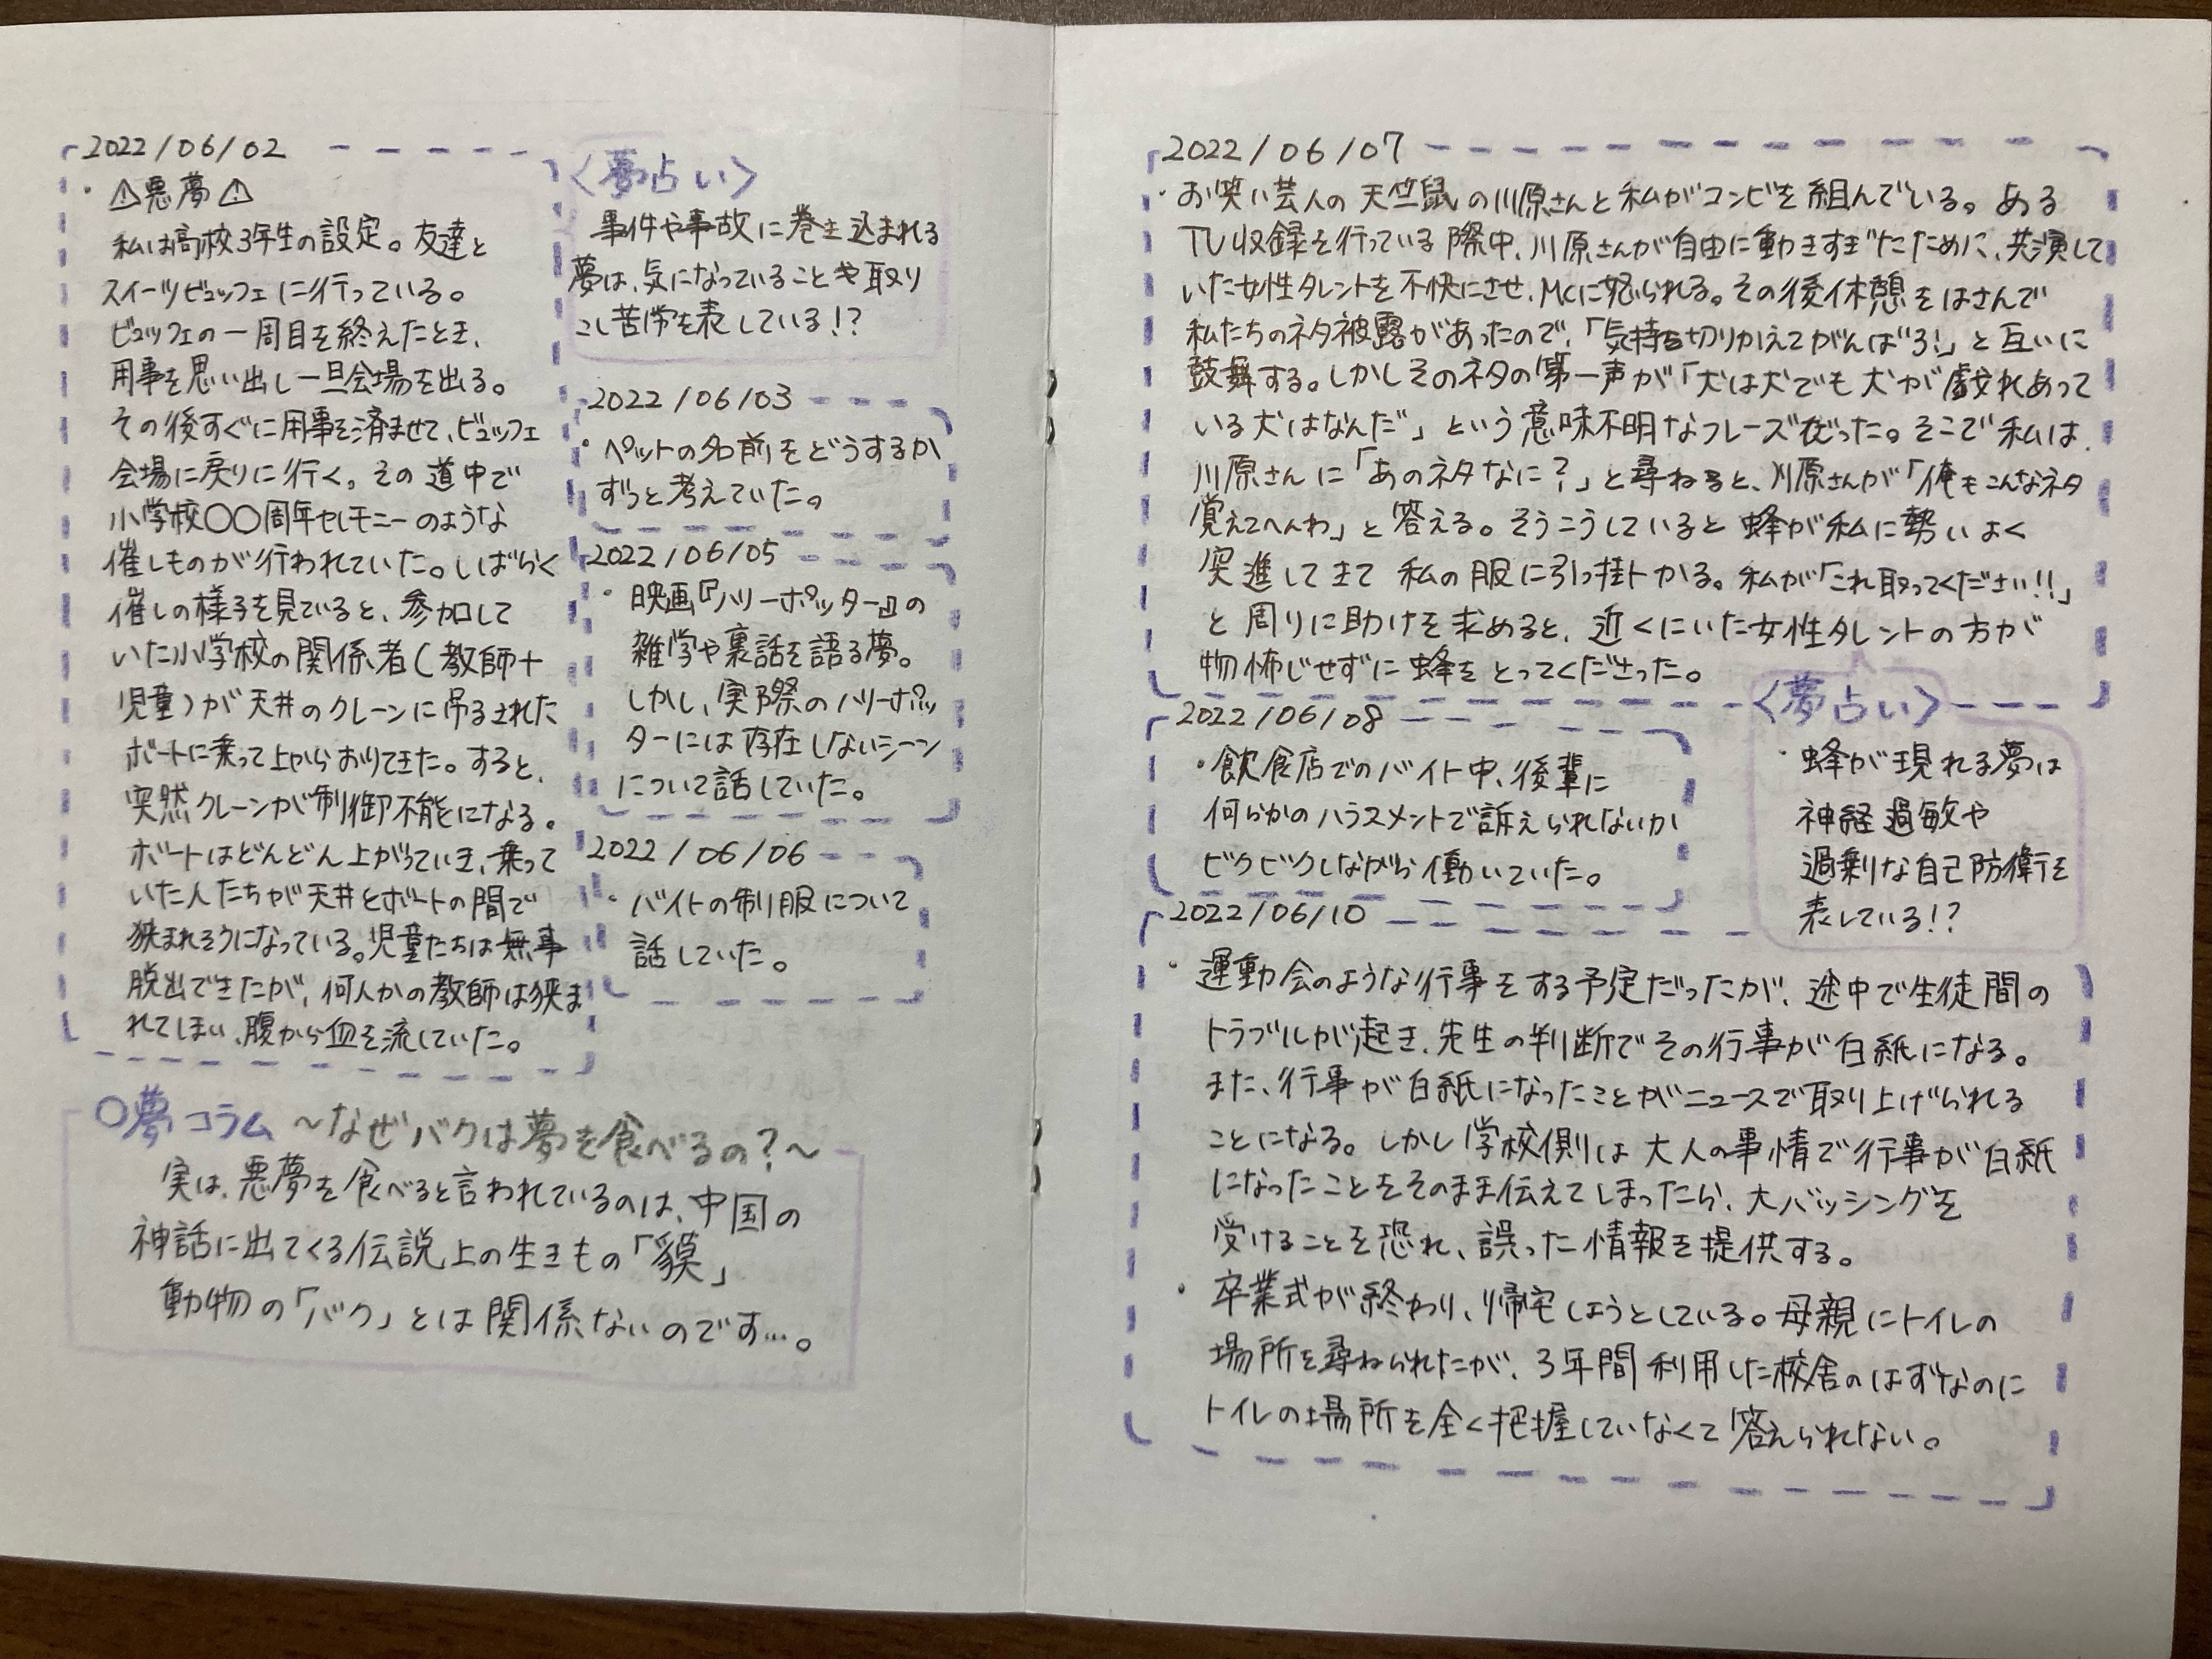 2022/06/02
・⚠悪夢⚠
私は高校3年生の設定。友達と
スイーツビュッフェに行っている。
ビュッフェの一周目を終えたとき、
用事を思い出し一旦会場を出る。
その後すぐに用事を済ませて、ビュッフェ
会場に戻りに行く。その道中で
小学校〇〇周年セレモニーのような
催しものが行われていた。しばらく
催しの様子を見ていると、参加して
いた小学校の関係者(教師+
児童)が天井のクレーンに吊るされた
ボートに乗って上からおりてきた。すると、
突然クレーンが制御不能になる。
ボートはどんどん上がっていき、乗って
いた人たちが天井とボートの間で
狭まれそうになっている。児童たちは無事
脱出できたが、何人かの教師は狭ま
れてしまい、腹から血を流していた。
<夢占い>
事件や事故に巻き込まれる
夢は、気になっていることや取り
こし苦労を表している!?
2022/06/03
・ペットの名前をどうするか
ずっと考えていた。
2022/06/05
・映画『ハリーポッター』の
雑学や裏話を語る夢。
しかし、実際のハリーポッ
ターには存在しないシーン
について話していた。
2022/06/06
・バイトの制服について
話していた。
〇夢コラム ～なぜバクは夢を食べるの?～
実は、悪夢を食べると言われているのは、中国の
神話に出てくる伝説上の生きもの「貘」
動物の「バク」とは関係ないのです…。
2022/06/07
・お笑い芸人の天竺鼠の川原さんと私がコンビを組んでいる。ある
TV収録を行っている際中、川原さんが自由に動きすぎたために、共演して
いた女性タレントを不快にさせ、MCに怒られる。その後休憩をはさんで
私たちのネタ披露があったので、「気持ち切りかえてがんばろ!」と互いに
鼓舞する。しかしそのネタの第一声が「犬は犬でも犬が戯れあって
いる犬はなんだ」という意味不明なフレーズだった。そこで私は、
川原さんに「あのネタなに?」と尋ねると、川原さんが「俺もこんなネタ
覚えてへんわ」と答える。そうこうしていると蜂が私に勢いよく
突進してきて私の服に引っ掛かる。私が「これ取ってください!!」
と周りに助けを求めると、近くにいた女性タレントの方が
物怖じせずに蜂をとってくださった。
2022/06/08
・飲食店でのバイト中、後輩に
何らかのハラスメントで訴えられないか
ビクビクしながら働いていた。
<夢占い>
・蜂が現れる夢は
神経過敏や
過剰な自己防衛を
表している!?
2022/06/10
・運動会のような行事をする予定だったが、途中で生徒間の
トラブルが起き、先生の判断でその行事が白紙になる。
また、行事が白紙になったことがニュースで取り上げられる
ことになる。しかし学校側は大人の事情で行事が白紙
になったことをそのまま伝えてしまったら、大バッシングを
受けることを恐れ、誤った情報を提供する。
・卒業式が終わり、帰宅しようとしている。母親にトイレの
場所を尋ねられたが、3年間利用した校舎のはずなのに
トイレの場所を全く把握していなくて答えられない。